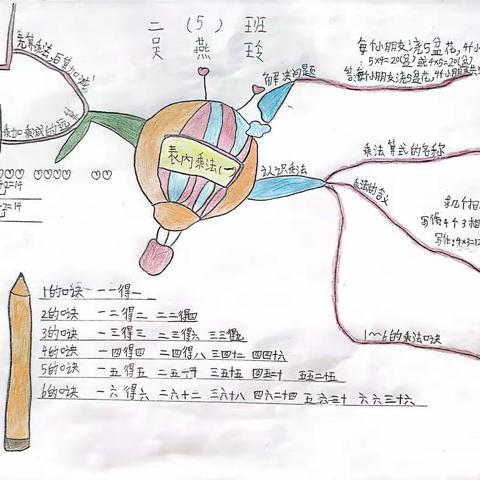 二（5）班
吴燕玲
每个小朋友浇5盆花，4个小
5×4=20（盆）或4×5=20（盆）
答：每个小朋友浇5盆花，4个小朋友
解决问题
先算乘法，后算加减
乘加乘减的运算
2=14
2=14
表内乘法（一）
认识乘法
乘法算式的名称
乘法的含义
几个相
写作：4个3相
写作：4×3=12
1～6的乘法口诀
1的口诀 一一得一
2的口诀 一二得二 二二得四
3的口诀 一三得三 二三得六 三三得九
4的口诀 一四得四 二四得八 三四十二 四四十六
5的口诀 一五得五 二五一十 三五十五 四五二十 五五二十五
6的口诀 一六得六 二六十二 三六十八 四六二十四 五六三十 六六三十六